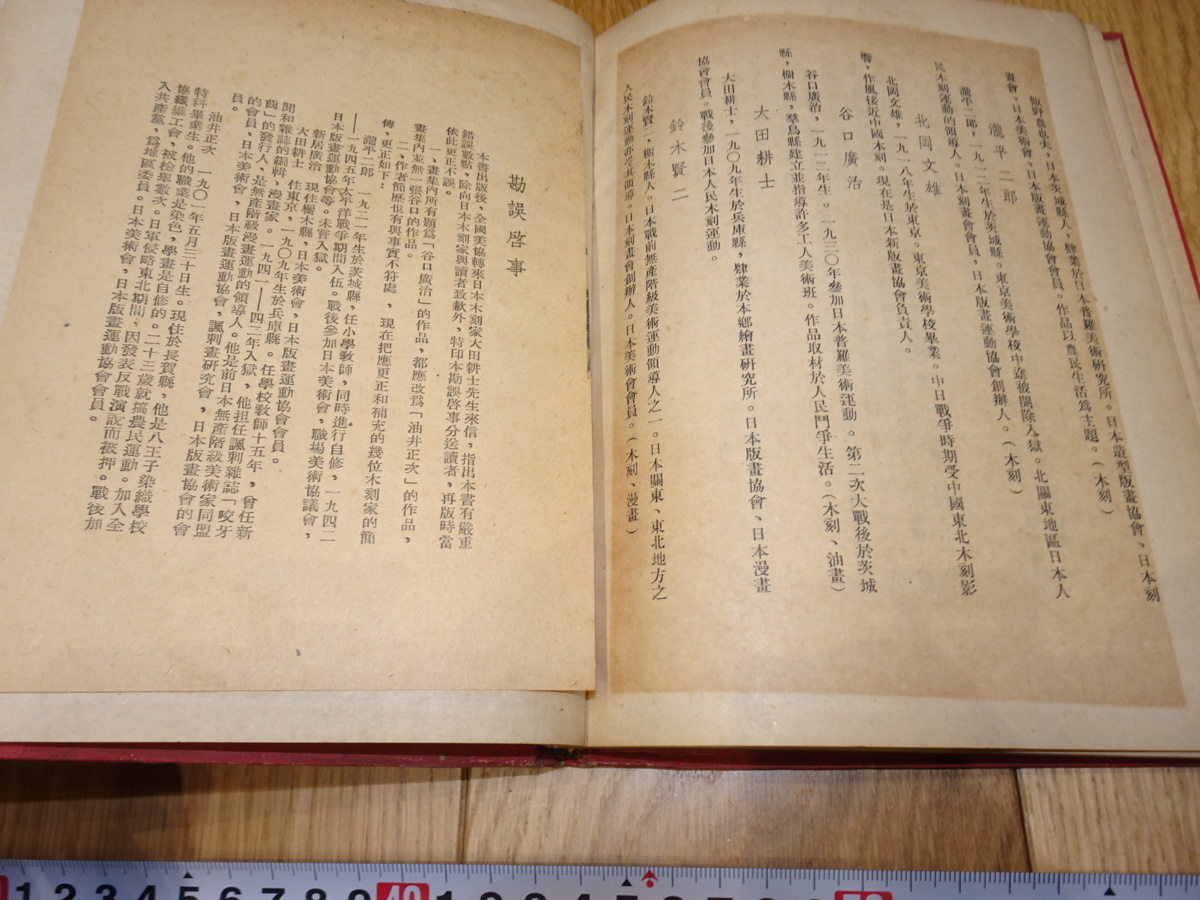 飯野農夫夫，日本茨城縣人，肄業於日本普羅美術研究所。日本造型版畫協會、日本刻
畫會、日本美術會、日本版畫運動協會會員。作品以農民生活爲主題。（木刻）
瀧平二郎
瀧平二郎，一九一二年生於茨城縣。東京美術學校中途被開除入獄。北關東地區日本人
民木刻運動的領導人。日本刻畫會會員，日本版畫運動協會創辦人。（木刻）
北岡文雄
北岡文雄，一九一八年生於東京。東京美術學校畢業。中日戰爭時期受中國東北木刻影
響，作風接近中國木刻。現在是日本新版畫協會負責人。
谷口廣治
谷口廣治，一九一二年生。一九三〇年參加日本普羅美術運動。第二次大戰後於茨城
縣，櫔木縣，羣鳥縣建立並指導許多工人美術班。作品取材於人民鬥爭生活。（木刻、油畫）
大田耕士
大田耕士，一九〇九年生於兵庫縣，肄業於本鄉繪畫研究所。日本版畫協會、日本漫畫
協會會員。戰後參加日本人民木刻運動。
鈴木賢二
鈴木賢二，櫔木縣人。日本戰前無產階級美術運動領導人之一。日本關東、東北地方之
人民木刻運動亦受其領導。日本刻畫會創辦人。日本美術會會員。（木刻、漫畫）
勘誤啓事
本書出版後，全國美協轉來日本木刻家大田耕士先生來信，指出本書有嚴重
錯誤數點，除向日本木刻家與讀者致歉外，特印本勘誤啓事分送讀者，再版時當
依此更正不誤。
一、畫集內所有題爲「谷口廣治」的作品，都應改爲「油井正次」的作品，
畫集內並無一張谷口的作品。
二、作者簡歷也有與事實不符處，現在把應更正和補充的幾位木刻家的簡
傳，更正如下：
瀧平二郎 一九二一年生於茨城縣，任小學教師，同時進行自修，一九四二
——一九四五年太平洋戰爭期間入伍。戰後參加日本美術會，職場美術協議會，
日本版畫運動協會等。未嘗入獄。
新居廣治 現住櫔木縣，日本美術會，日本版畫運動協會會員。
大田耕士 住東京，一九〇九年生於兵庫縣。任學校教師十五年，曾任新
聞和雜誌的編輯，漫畫家。一九四一——四二年入獄，他担任諷刺雜誌「咬牙
齒」的發行人，是無產階級漫畫運動的領導人。他是前日本無產階級美術家同盟
的會員，日本美術會，日本版畫運動協會，諷刺畫研究會，日本版畫協會的會
員。
油井正次 一九〇一年五月三十日生。現住於長賀縣，他是八王子染織學校
特科畢業生。他的職業是染色，學畫是自修的。二十三歲就搞農民運動。加入全
協纖維工會，被檢舉數次。日軍侵略東北期間，因發表反戰演說而被押。戰後加
入共產黨，爲地區委員。日本美術會，日本版畫運動協會會員。
1 2 3 4 5 6 7 8 9 40 1 2 3 4 5 6 7 8 9